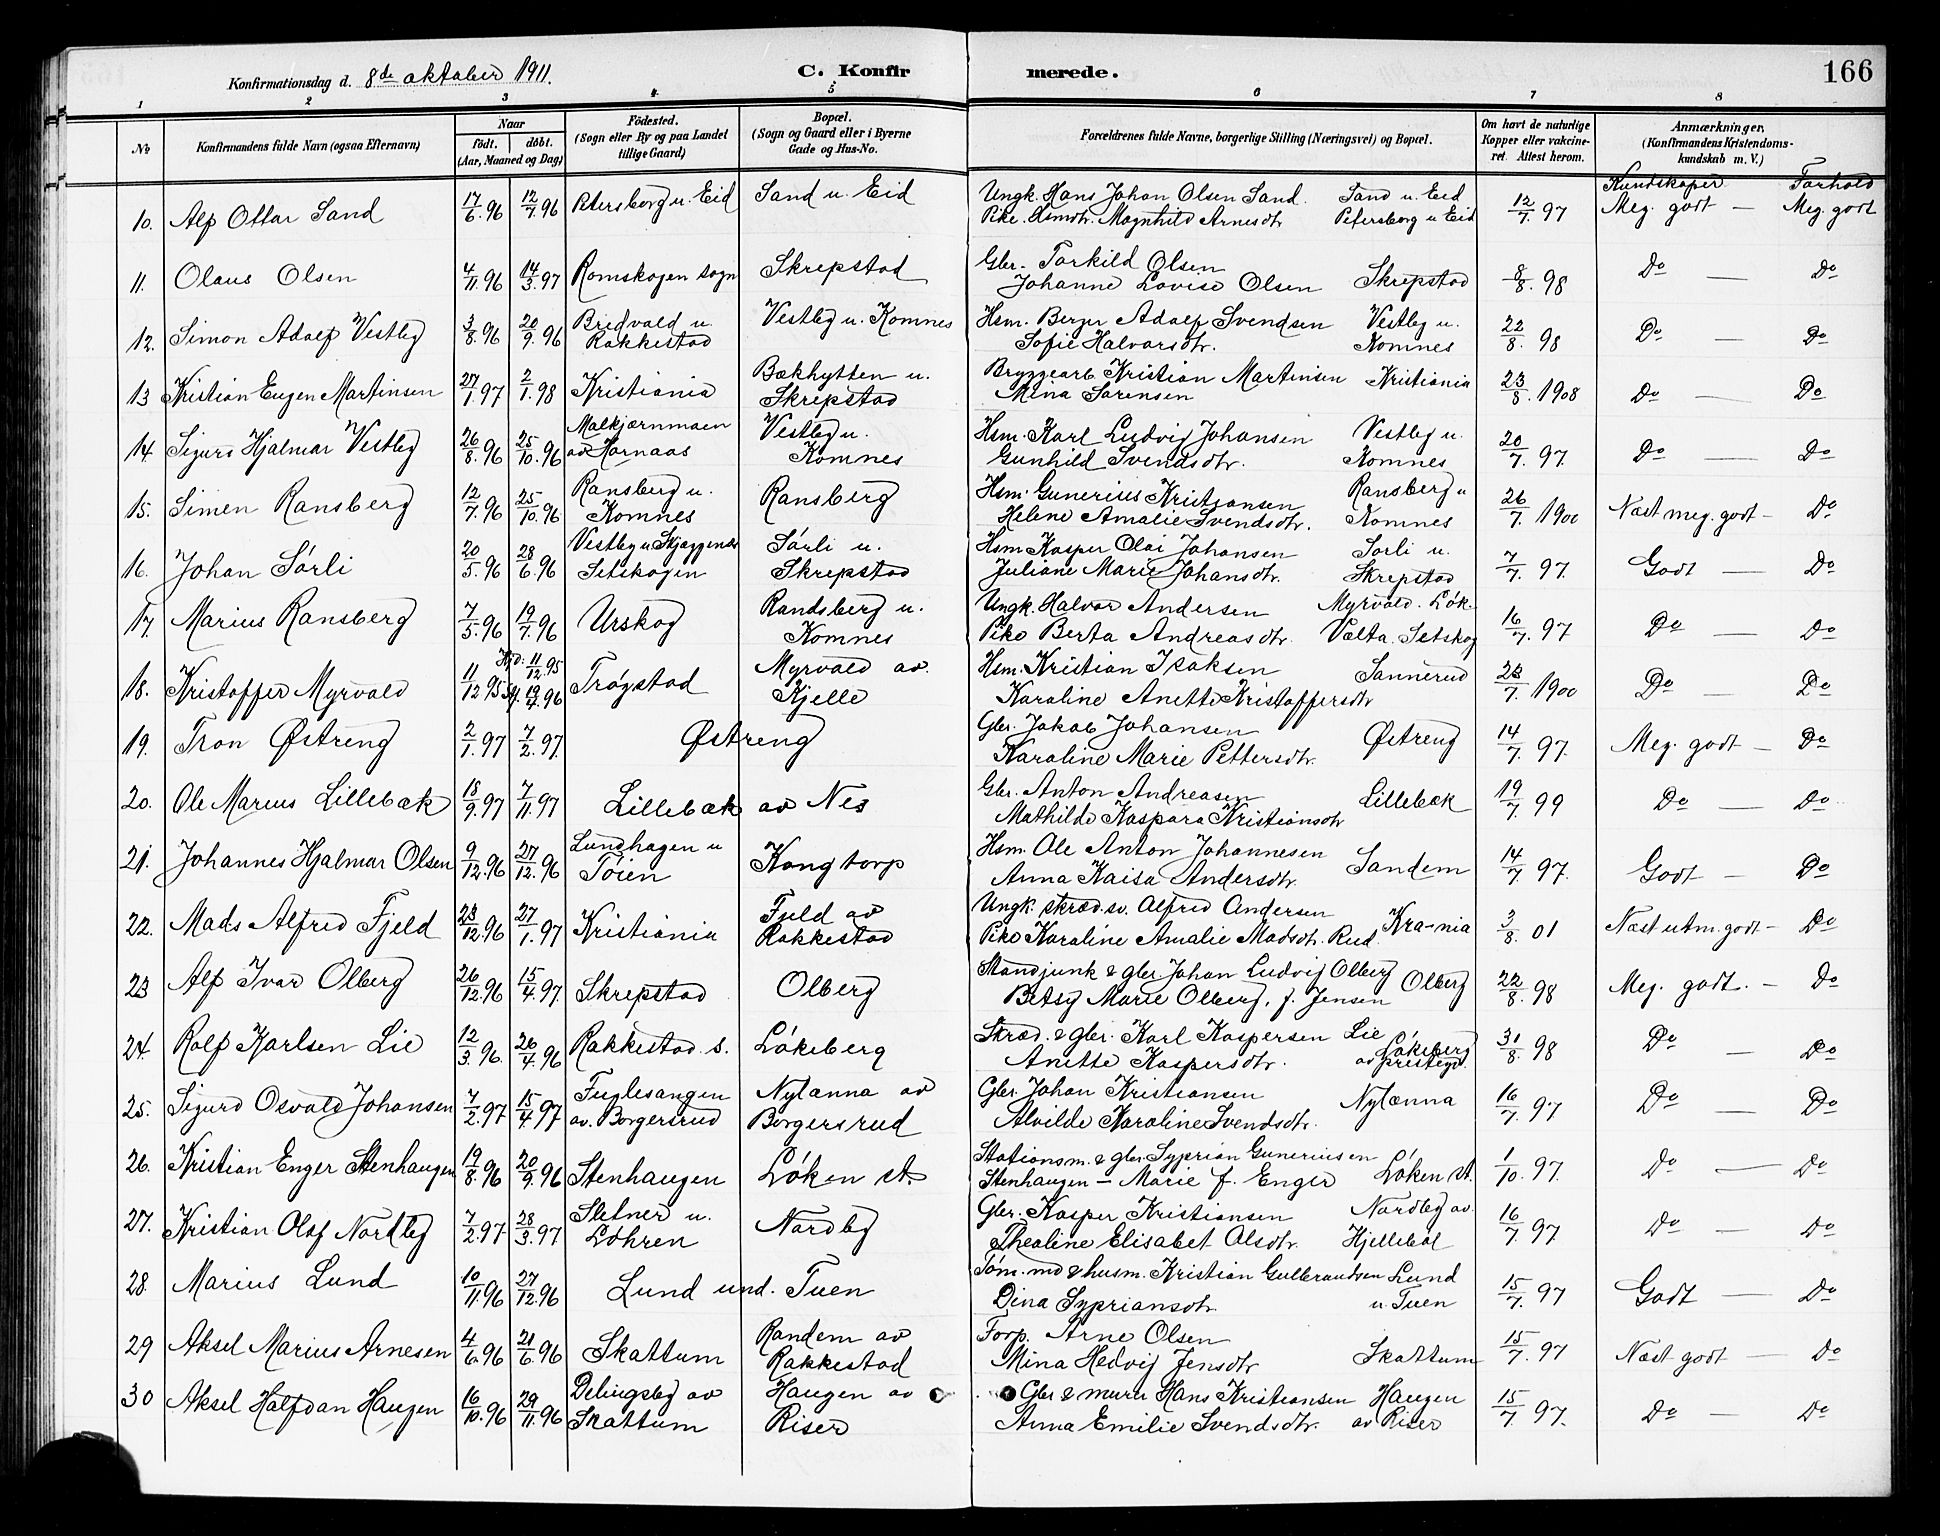 166
Konfirmationsdag d. 8de oktober 1911.
C. Konfirmerede.
1 2 3 4 5 6 7 8
No
Konfirmandens fulde Navn (ogsaa Efternavn)
Naar
födt. döbt.
(Aar, Maaned og Dag)
Födested.
(Sogn eller By og paa Landet
tillige Gaard)
Bopæl.
(Sogn og Gaard eller i Byerne
Gade og Hus-No.
Forældrenes fulde Navne, borgerlige Stilling (Næringsvei) og Bopæl.
Om havt de naturlige
Kopper eller vakcine-
ret. Attest herom.
Anmærkninger,
(Konfirmandens Kristendoms-
kundskab m. V.)
Kundskaper Forhold
10. Alf Ottar Sand 17/6.96 12/7.96 Petersborg u. Eid Sand u. Eid Ungk. Hans Johan Olsen Sand. Sand u. Eid
Pike. Hsmdtr. Magnhild Arnesdtr Petersborg u Eid 12/7.97 Meg. godt — Meg. godt
11. Olaus Olsen 4/11.96 14/3.97 Romskogen sogn Skrepstad Gbr. Torkild Olsen
Johanne Lovise Olsen Skrepstad 8/8.98 Do — Do
12. Simon Adolf Vestby 3/8.96 20/9.96 Bredvald u.
Rakkestad Vestby u. Komnes Hsm. Berger Adolf Svendsen Vestby u.
Sofie Halvorsdtr. Komnes 22/8.98 Do — Do
13 Kristian Eugen Martinsen 27/1.97 2/1.98 Kristiania Bækhytten u.
Skrepstad Bryggearb Kristian Martinsen Kristiania
Mina Sørensen 23/8.1908 Do — Do
14. Sigurd Hjalmar Vestby 26/8.96 25/10.96 Malkjærnmoen
av Hornaas Vestby u.
Komnes Hsm. Karl Ludvig Johansen Vestby u.
Gunhild Svendsdtr. Komnes 20/7.97. Do — Do
15. Simen Ransberg 12/7.96 25/10.96 Ransberg u.
Komnes Ransberg Hsm. Gunerius Kristiansen Ransberg u
Helene Amalie Svendsdtr. Komnes 26/7.1900 Næst meg. godt — Do
16. Johan Sörli 20/5.96 28/6.96 Vestby u Skjæggenes
Setskogen Sörli u.
Skrepstad Hsm Kasper Olai Johansen Sorli u.
Juliane Marie Johansdtr. Skrepstad 7/7.97. Godt — Do
17. Marius Ransberg 7/5.96 19/7.96 Urskog Randsberg u.
Komnes Ungk. Halvor Andersen Myrvold. Løk.
Pike Berta Andreasdtr. Vælta. Setskog 16/7.97 Do — Do
18. Kristoffer Myrvold 11/12.95 Hjd. 11/12.95 19/4.96 Trøgstad Myrvold av.
Kjelle Hsm. Kristian Isaksen Sannerud
Karoline Anette Kristoffersdtr 23/7.1900 Do — Do
19. Tron Østreng 2/1.97 7/2.97. Østreng Gbr. Jakob Johansen
Karoline Marie Pettersdtr. Østreng 14/7.97. Meg. godt — Do
20. Ole Marius Lillebæk 18/9.97 7/11.97 Lillebæk av Nes Gbr. Anton Andreasen
Mathilde Kaspara Kristiansdtr Lillebæk 19/7.99 Do — Do
21. Johannes Hjalmar Olsen 9/12.96 27/12.96 Lundhagen u
Töien Kongtorp Hsm. Ole Anton Johannesen
Anna Kaisa Andersdtr. Sandem 14/7.97. Godt — Do
22. Mads Alfred Fjeld 23/12.96 27/1.97 Kristiania Fjeld av
Rakkestad Ungk. skræd.sv. Alfred Andersen Kra-nia
Pike Karoline Amalie Madsdtr. Rud. 3/8.01 Næst utm. godt — Do
23 Alf Ivar Olberg 26/12.96 15/4.97. Skrepstad Olberg Standjunk & gbr. Johan Ludvig Olberg
Betsy Marie Olberg, f. Jensen Olberg 22/8.98 Meg. godt. — Do
24. Rolf Karlsen Lie 12/3.96. 26/4.96 Rakkestad s. Lökeberg Skræd. & gbr. Karl Kaspersen Lie
Anette Kaspersdtr. Lökeberg
av prestegd. 31/8.98 Do — Do
25. Sigurd Osvald Johansen 7/2.97 15/4.97 Fuglesangen
av. Borgersrud Nylænna av
Borgersrud Gbr. Johan Kristiansen
Alvilde Karoline Svendsdtr. Nylænna 16/7.97 Do — Do
26. Kristian Enger Stenhaugen 19/8.96 20/9.96 Stenhaugen Löken st. Stationsm. & gbr. Syprian Guneriusen
Stenhaugen — Marie f. Enger Löken st. 1/10.97. Do — Do
27. Kristian Olaf Nordby 7/2.97 28/3.97 Sletner u.
Löhren Nordby Gbr. Kasper Kristiansen Nordby av.
Thealine Elisabet Olsdtr. Hjellebøl 16/7.97. Do — Do
28. Marius Lund 10/11.96 27/12.96 Lund und. Tuen Töm.md & husm. Kristian Gulbrandsen Lund
Dina Sypriansdtr. u. Tuen 15/7.97 Godt — Do
29 Aksel Marius Arnesen 4/6.96 21/6.96 Skattum Randem av
Rakkestad Forp. Arne Olsen
Mina Hedvig Jensdtr Skattum 15/7.97 Næst godt — Do
30 Aksel Halfdan Haugen 16/10.96 29/11.96 Delingsby av
Skattum Haugen av
Riser Gbr & murer Hans Kristiansen Haugen
Anna Emilie Svendsdtr. av Riser 15/7.97. Do — Do